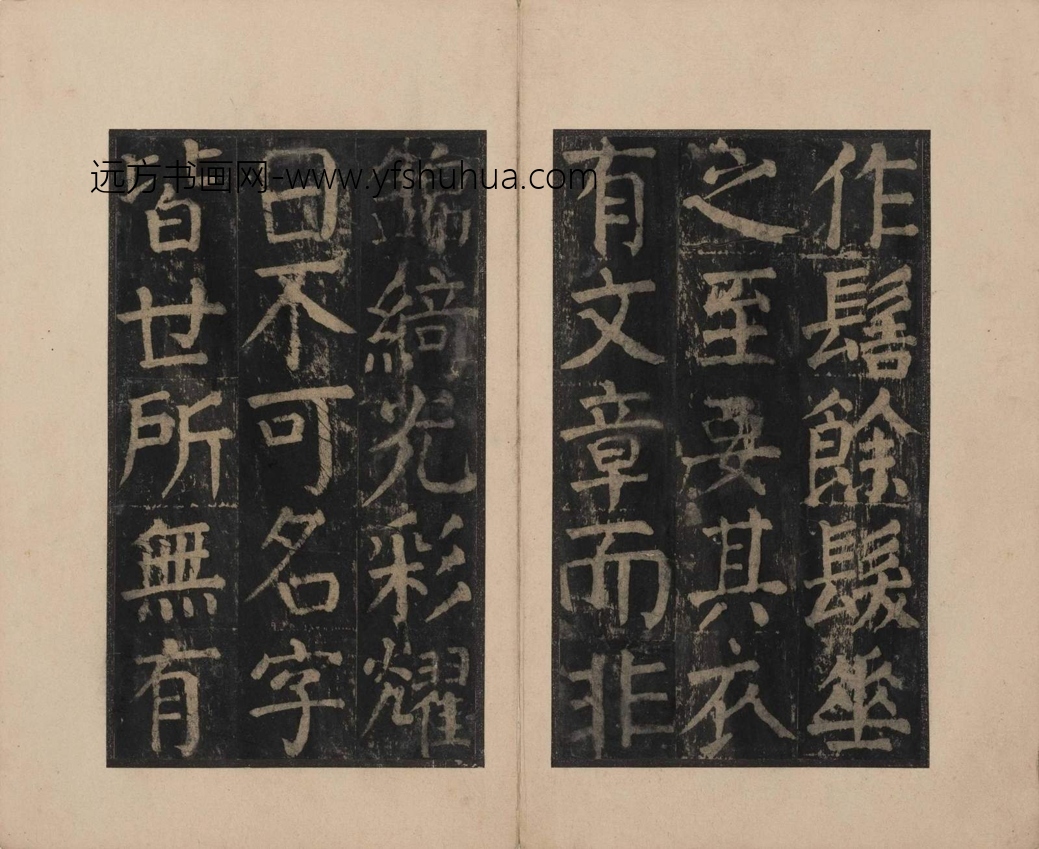 作髻餘髮㘴
之至要其衣
有文章而非
錦綺光彩耀
日不可名字
皆世所無有
远方书画网-www.yfshuhua.com